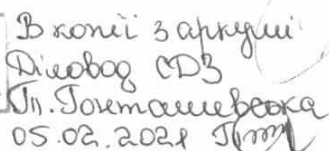 В копії 3 аркуші
Діловод СДЗ
Т. Гонташевська
05.02.2021